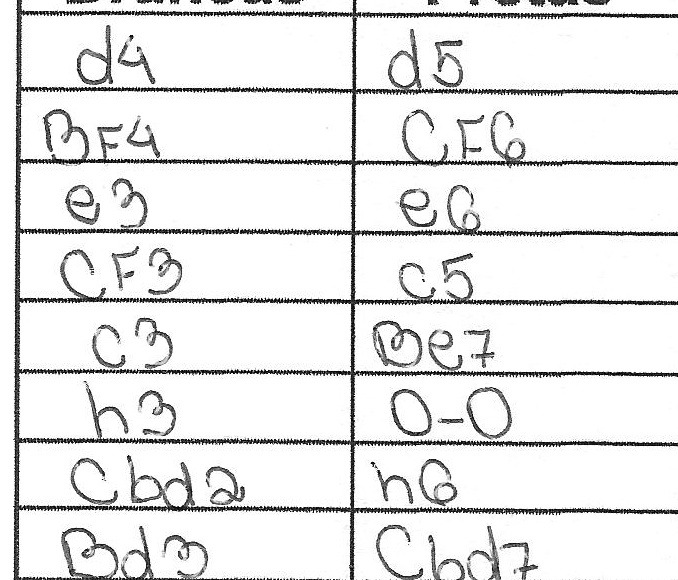 d4 d5
BF4 CF6
e3 e6
CF3 c5
c3 Be7
h3 0-0
Cbd2 h6
Bd3 Cbd7